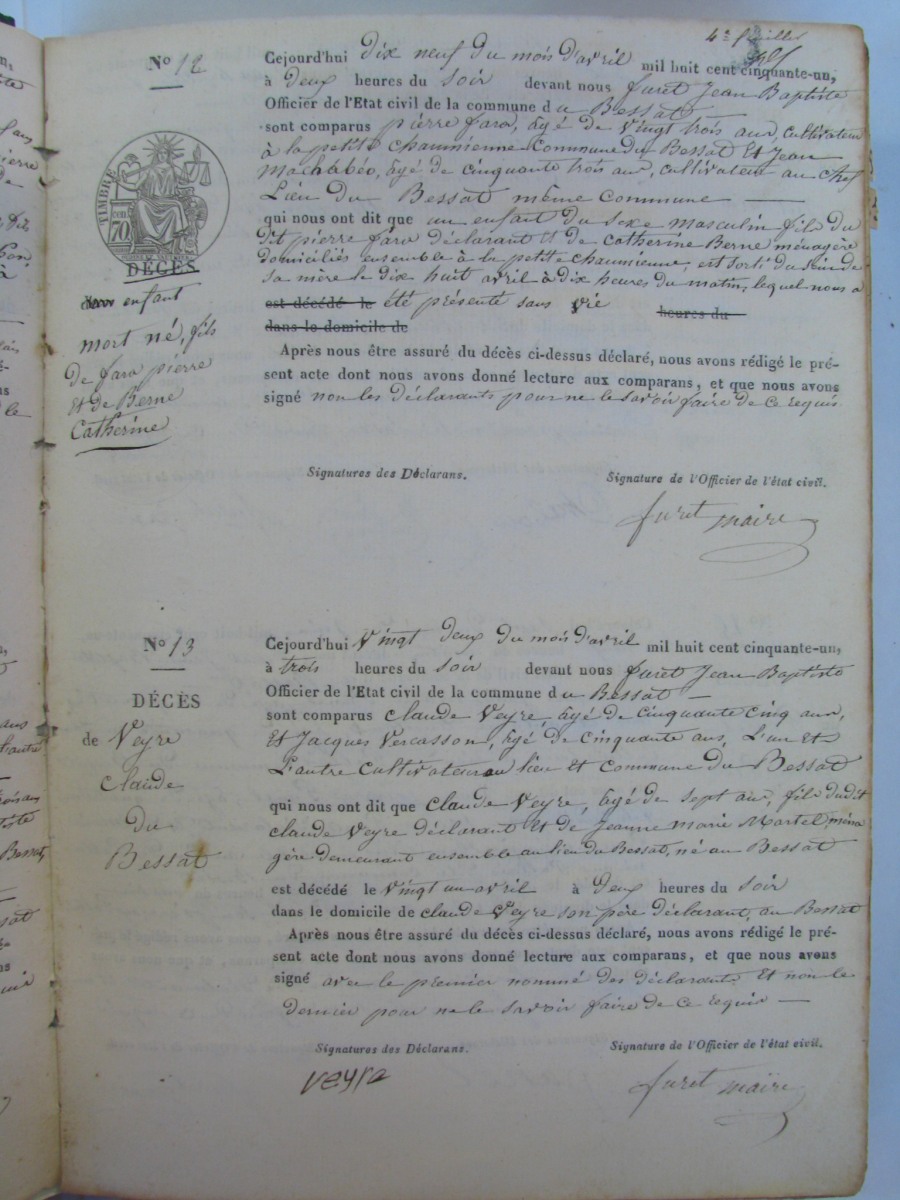 4e feuillet
No 12
TIMBRE
cen. 70
DÉCÈS
enfant
mort né, fils
de fara pierre
et de Berne
Catherine
Cejourd'hui dix neuf du mois d'avril mil huit cent cinquante-un,
à deux heures du soir devant nous furet Jean Baptiste
Officier de l'Etat civil de la commune du Bessat
sont comparus pierre fara, âgé de vingt trois ans, cultivateur
à la petite chaumienne Commune du Bessat Et Jean
Machabéo, âgé de cinquante trois ans, cultivateur au chef
Lieu du Bessat même Commune
qui nous ont dit que un enfant du sexe masculin fils du
dit pierre fara déclarant et de Catherine Berne ménagère
domiciliés ensemble à la petite chaumienne, est sorti du sein de
sa mère le dix huit avril à dix heures du matin, lequel nous a
est décédé le été présenté sans vie heures du
dans le domicile de
Après nous être assuré du décès ci-dessus déclaré, nous avons rédigé le pré-
sent acte dont nous avons donné lecture aux comparans, et que nous avons
signé non les déclarants pour ne le savoir faire de ce requis
Signatures des Déclarans.
Signature de l'Officier de l'état civil.
furet maire
No 13
DÉCÈS
de Veyre
Claude
du
Bessat
Cejourd'hui Vingt deux du mois d'avril mil huit cent cinquante-un,
à trois heures du soir devant nous furet Jean Baptiste
Officier de l'Etat civil de la commune du Bessat
sont comparus Claude Veyre, âgé de cinquante cinq ans,
Et Jacques Vercasson, âgé de cinquante ans, L'un et
L'autre cultivateur au lieu et Commune du Bessat
qui nous ont dit que Claude Veyre, âgé de sept ans, fils dudit
claude Veyre déclarant et de Jeanne marie Martel ména
gère demeurant ensemble au lieu du Bessat, né au Bessat
est décédé le vingt un avril à deux heures du soir
dans le domicile de claude Veyre son père déclarant, au Bessat
Après nous être assuré du décès ci-dessus déclaré, nous avons rédigé le pré-
sent acte dont nous avons donné lecture aux comparans, et que nous avons
signé avec le premier nommé des déclarants Et non le
dernier pour ne le savoir faire de ce requis
Signatures des Déclarans.
Signature de l'Officier de l'état civil.
veyra
furet maire